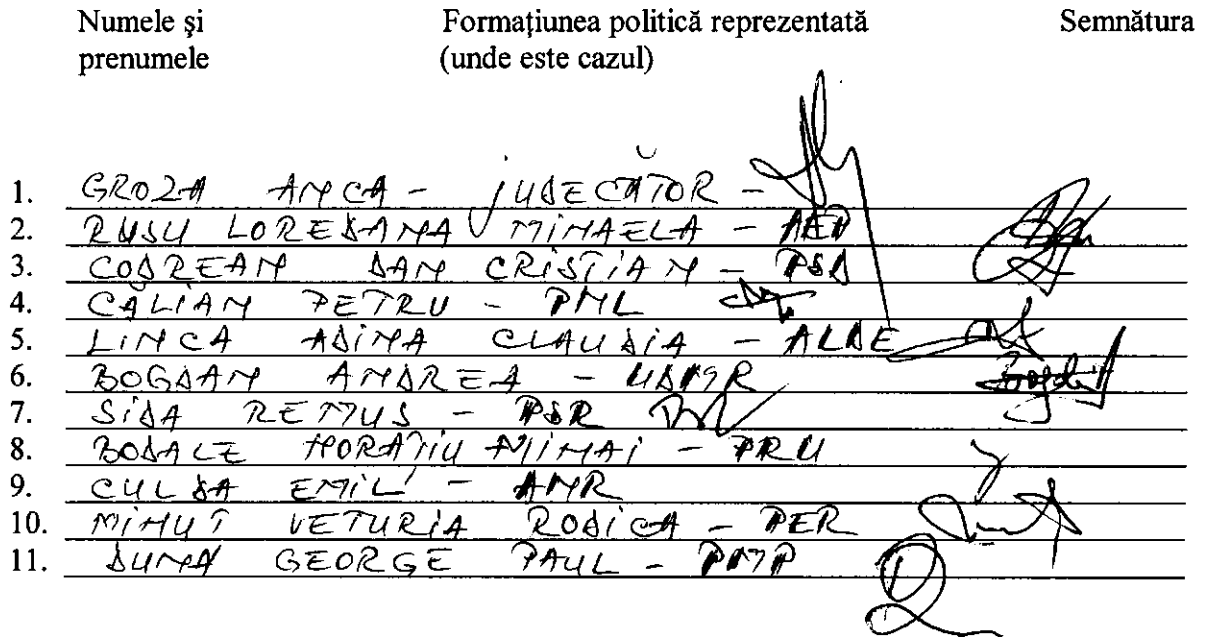 Numele şi Formaţiunea politică reprezentată Semnătura
prenumele (unde este cazul)
1. GROZA ANCA - JUDECĂTOR -
2. RUSU LOREDANA MIHAELA - AEP
3. CODREAN DAN CRISTIAN - PSD
4. CĂLIAN PETRU - PNL
5. LINCA ADINA CLAUDIA - ALDE
6. BOGDAN ANDREA - UDMR Bogdan
7. SIDA REMUS - PSR
8. BODALE HORAȚIU MIHAI - PRU
9. CULDA EMIL - ANR
10. MIHUȚ VETURIA RODICA - PER
11. DUMA GEORGE PAUL - PMP